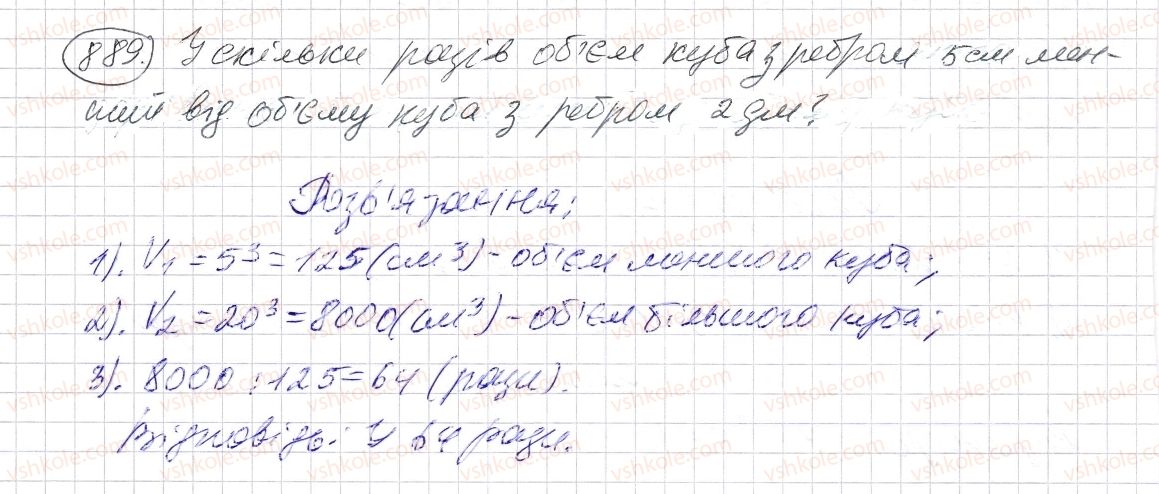 889. У скільки разів об'єм куба з ребром 5 см мен-
ший від об'єму куба з ребром 2 дм?
Розв'язання:
1). V₁ = 5³ = 125 (см³) - об'єм меншого куба;
2). V₂ = 20³ = 8000 (см³) - об'єм більшого куба;
3). 8000 : 125 = 64 (рази).
Відповідь: У 64 рази.